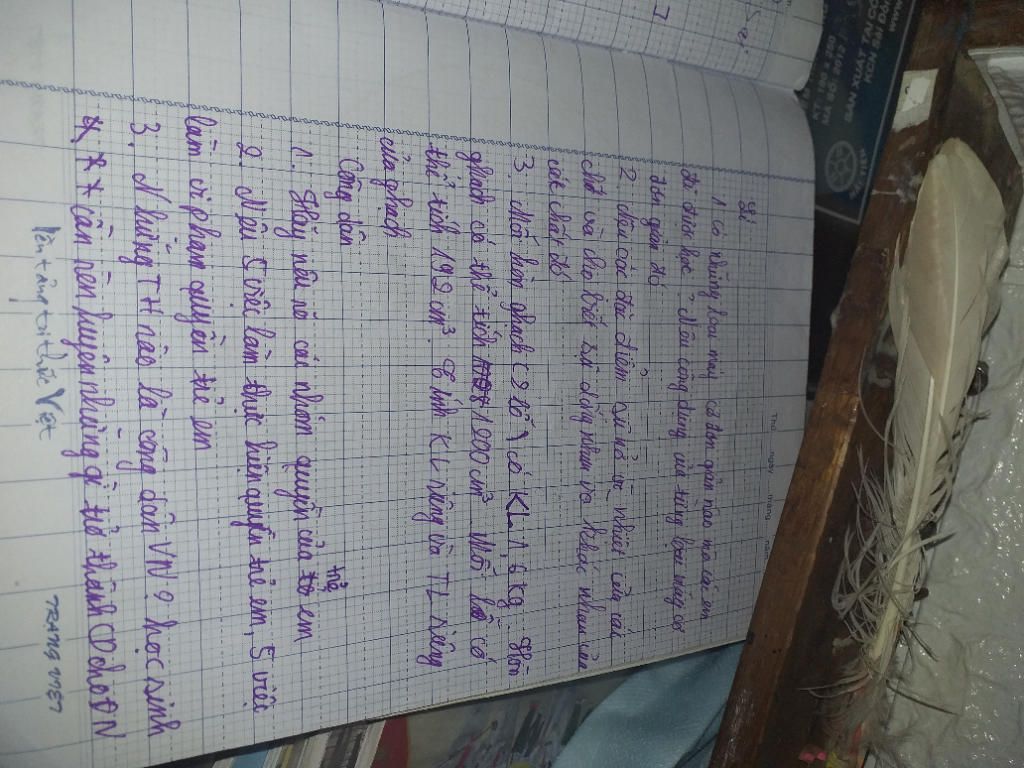 Thứ ngày tháng năm
Lí
1. Có những loại máy cơ đơn giản nào mà các em
đã được học? Nêu công dụng của từng loại máy cơ
đơn giản đó
2. Nêu các đặc điểm sự nở vì nhiệt của các
chất và cho biết sự giống nhau và khác nhau của
các chất đó
3. Mỗi hòn gạch (2 lỗ) có KL 1,6 kg. Hòn
gạch có thể tích 1200 cm³. Mỗi lỗ có
thể tích 192 cm³. Tính KL riêng và TL riêng
của gạch
Công dân
1. Hãy nêu rõ các nhóm quyền của trẻ em
2. Nêu 5 việc làm thực hiện quyền trẻ em, 5 việc
làm vi phạm quyền trẻ em
3. Những TH nào là công dân VN? học sinh
*** cần rèn luyện những gì để thành CD
nền tảng tri thức Việt